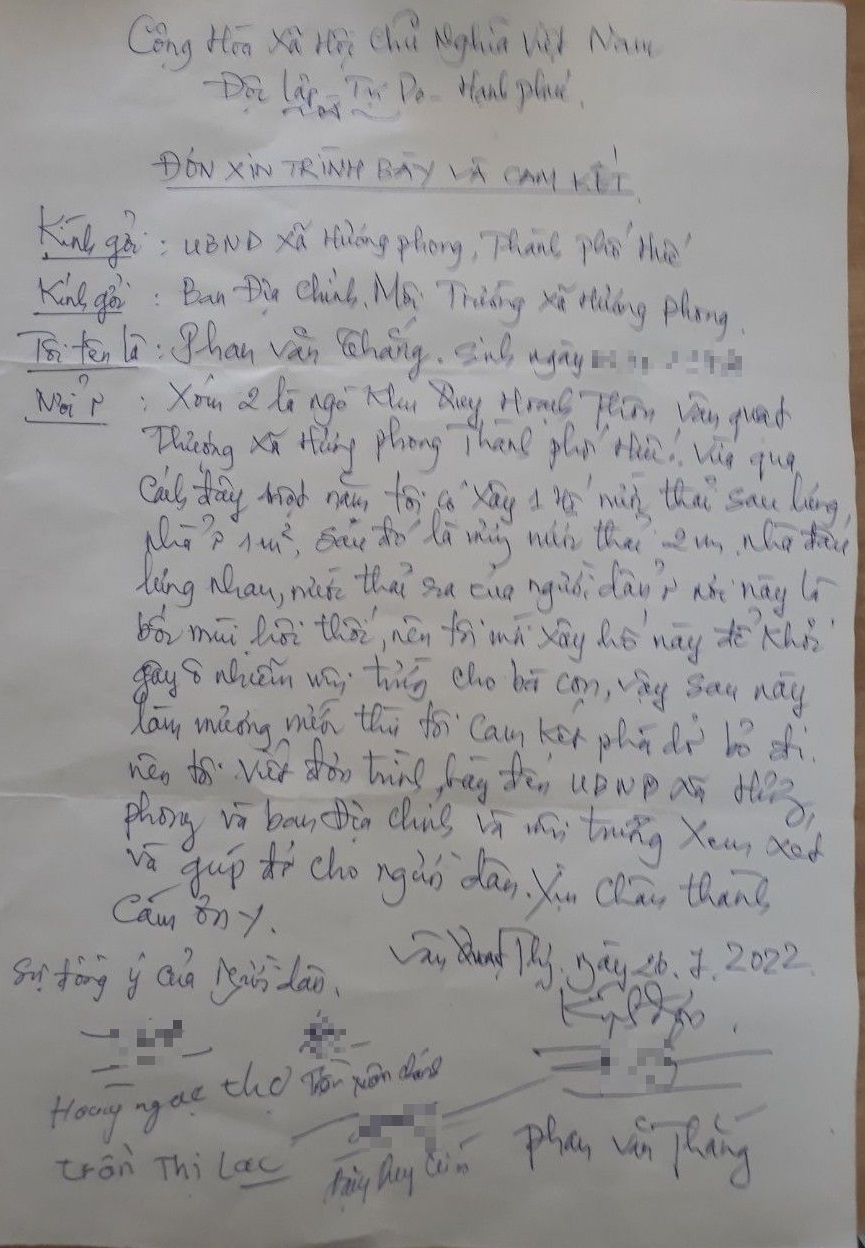 Cộng Hòa Xã Hội Chủ Nghĩa Việt Nam
Độc lập Tự Do - Hạnh phúc.
ĐƠN XIN TRÌNH BÀY VÀ CAM KẾT
Kính gởi : UBND xã Hương phong, Thành phố Huế
Kính gởi : Ban Địa Chính. Môi Trường xã Hương Phong.
Tôi tên là : Phan Văn Thắng. sinh ngày
Nơi ở : Xóm 2 là ngõ khu Quy Hoạch Vân quat
Thượng xã Hương phong Thành phố Huế. Vừa qua
Cách đây một năm tôi có xây 1 hố nước thải sau lưng
nhà ở 1m², sau đó là mương nước thải 2m, nhà đâu
lưng nhau, nước thải ra của người dân ở nơi này là
bốc mùi hôi thối, nên tôi mới xây hố này để khỏi
gây ô nhiễm môi trường cho bà con, vậy sau này
làm mương nước thì tôi cam kết phá dở bỏ đi.
nên tôi viết đơn trình bày đến UBND xã Hương
phong và ban Địa chính và môi trường xem xét
và giúp đỡ cho người dân. Xin chân thành
Cám ơn
Vân Quat Thg, ngày 26. 7. 2022.
Sự đồng ý của người dân.
Kính đơn.
Hoàng ngọc thơ
Trần xuân
Trần Thị Lạc
Duy
Phan Văn Thắng